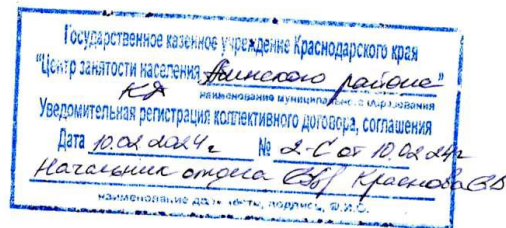 Государственное казенное учреждение Краснодарского края
"Центр занятости населения Абинского района"
КК
наименование муниципального образования
Уведомительная регистрация коллективного договора, соглашения
Дата 10.02.2024г № 2-С от 10.02.24г
Начальник отдела Краснова
наименование должности, подпись, Ф.И.О.